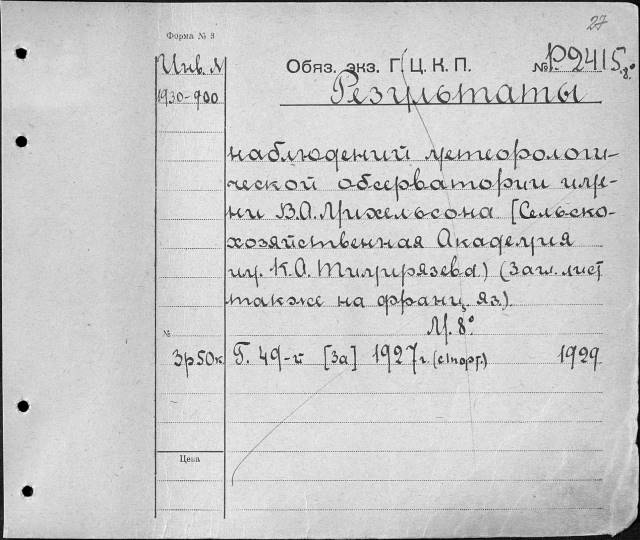 27
Форма № 3
Инв. №
Обяз. экз. Г.Ц.К.П.
№ Р.2415.8°
1930-900
Результаты
наблюдений метеорологи-
ческой обсерватории име-
ни В.А. Михельсона [Сельско-
хозяйственная Академия
им. К.А. Тимирязева) (Загл. лист
также на франц. яз.)
М. 8°
№
3р50к
Г. 49-й [За] 1927 г. (стогр.) 1929
Цена